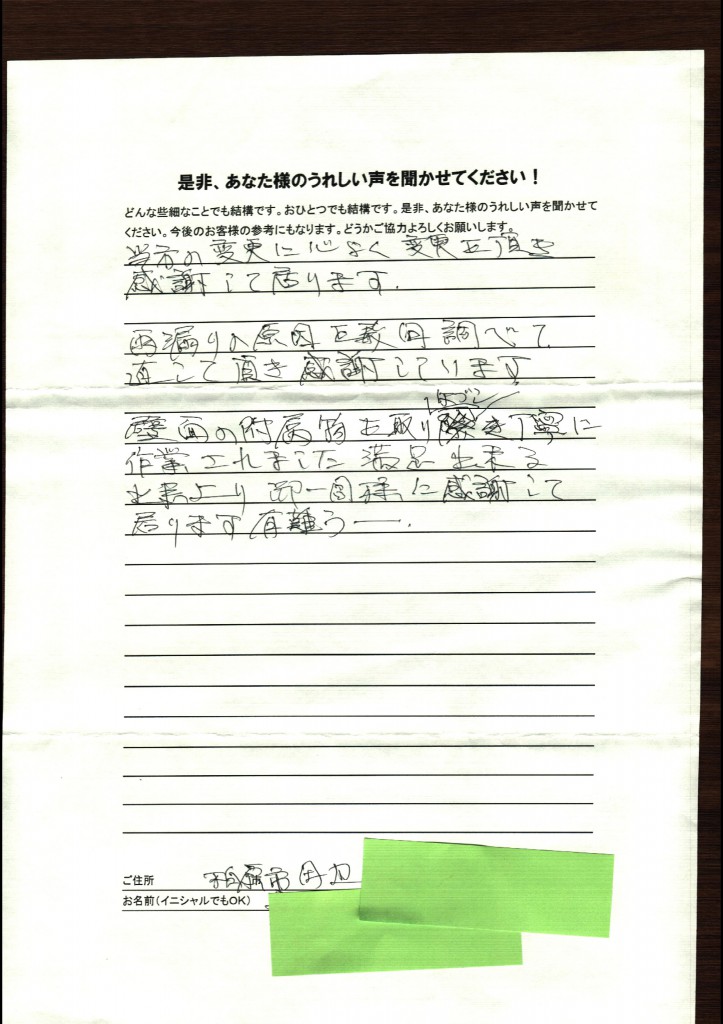 是非、あなた様のうれしい声を聞かせてください！
どんな些細なことでも結構です。おひとつでも結構です。是非、あなた様のうれしい声を聞かせて
ください。今後のお客様の参考にもなります。どうかご協力よろしくお願いします。
当方の変更に心よく変更を頂き
感謝して居ります.
雨漏りの原因を数回調べて
直して頂き感謝しております
壁面の附属物を取り
丁寧に
作業されました 満足出来る
出来より
様に感謝して
居ります 有難う
ご住所
お名前（イニシャルでもOK）